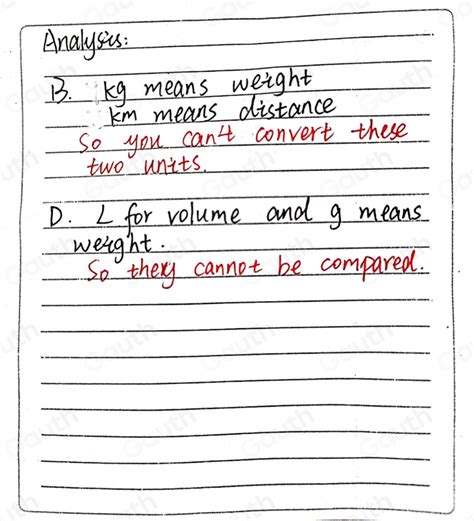 Analysis:
B. kg means weight
km means distance
So you can't convert these
two units.
D. L for volume and g means
weight.
So they cannot be compared.